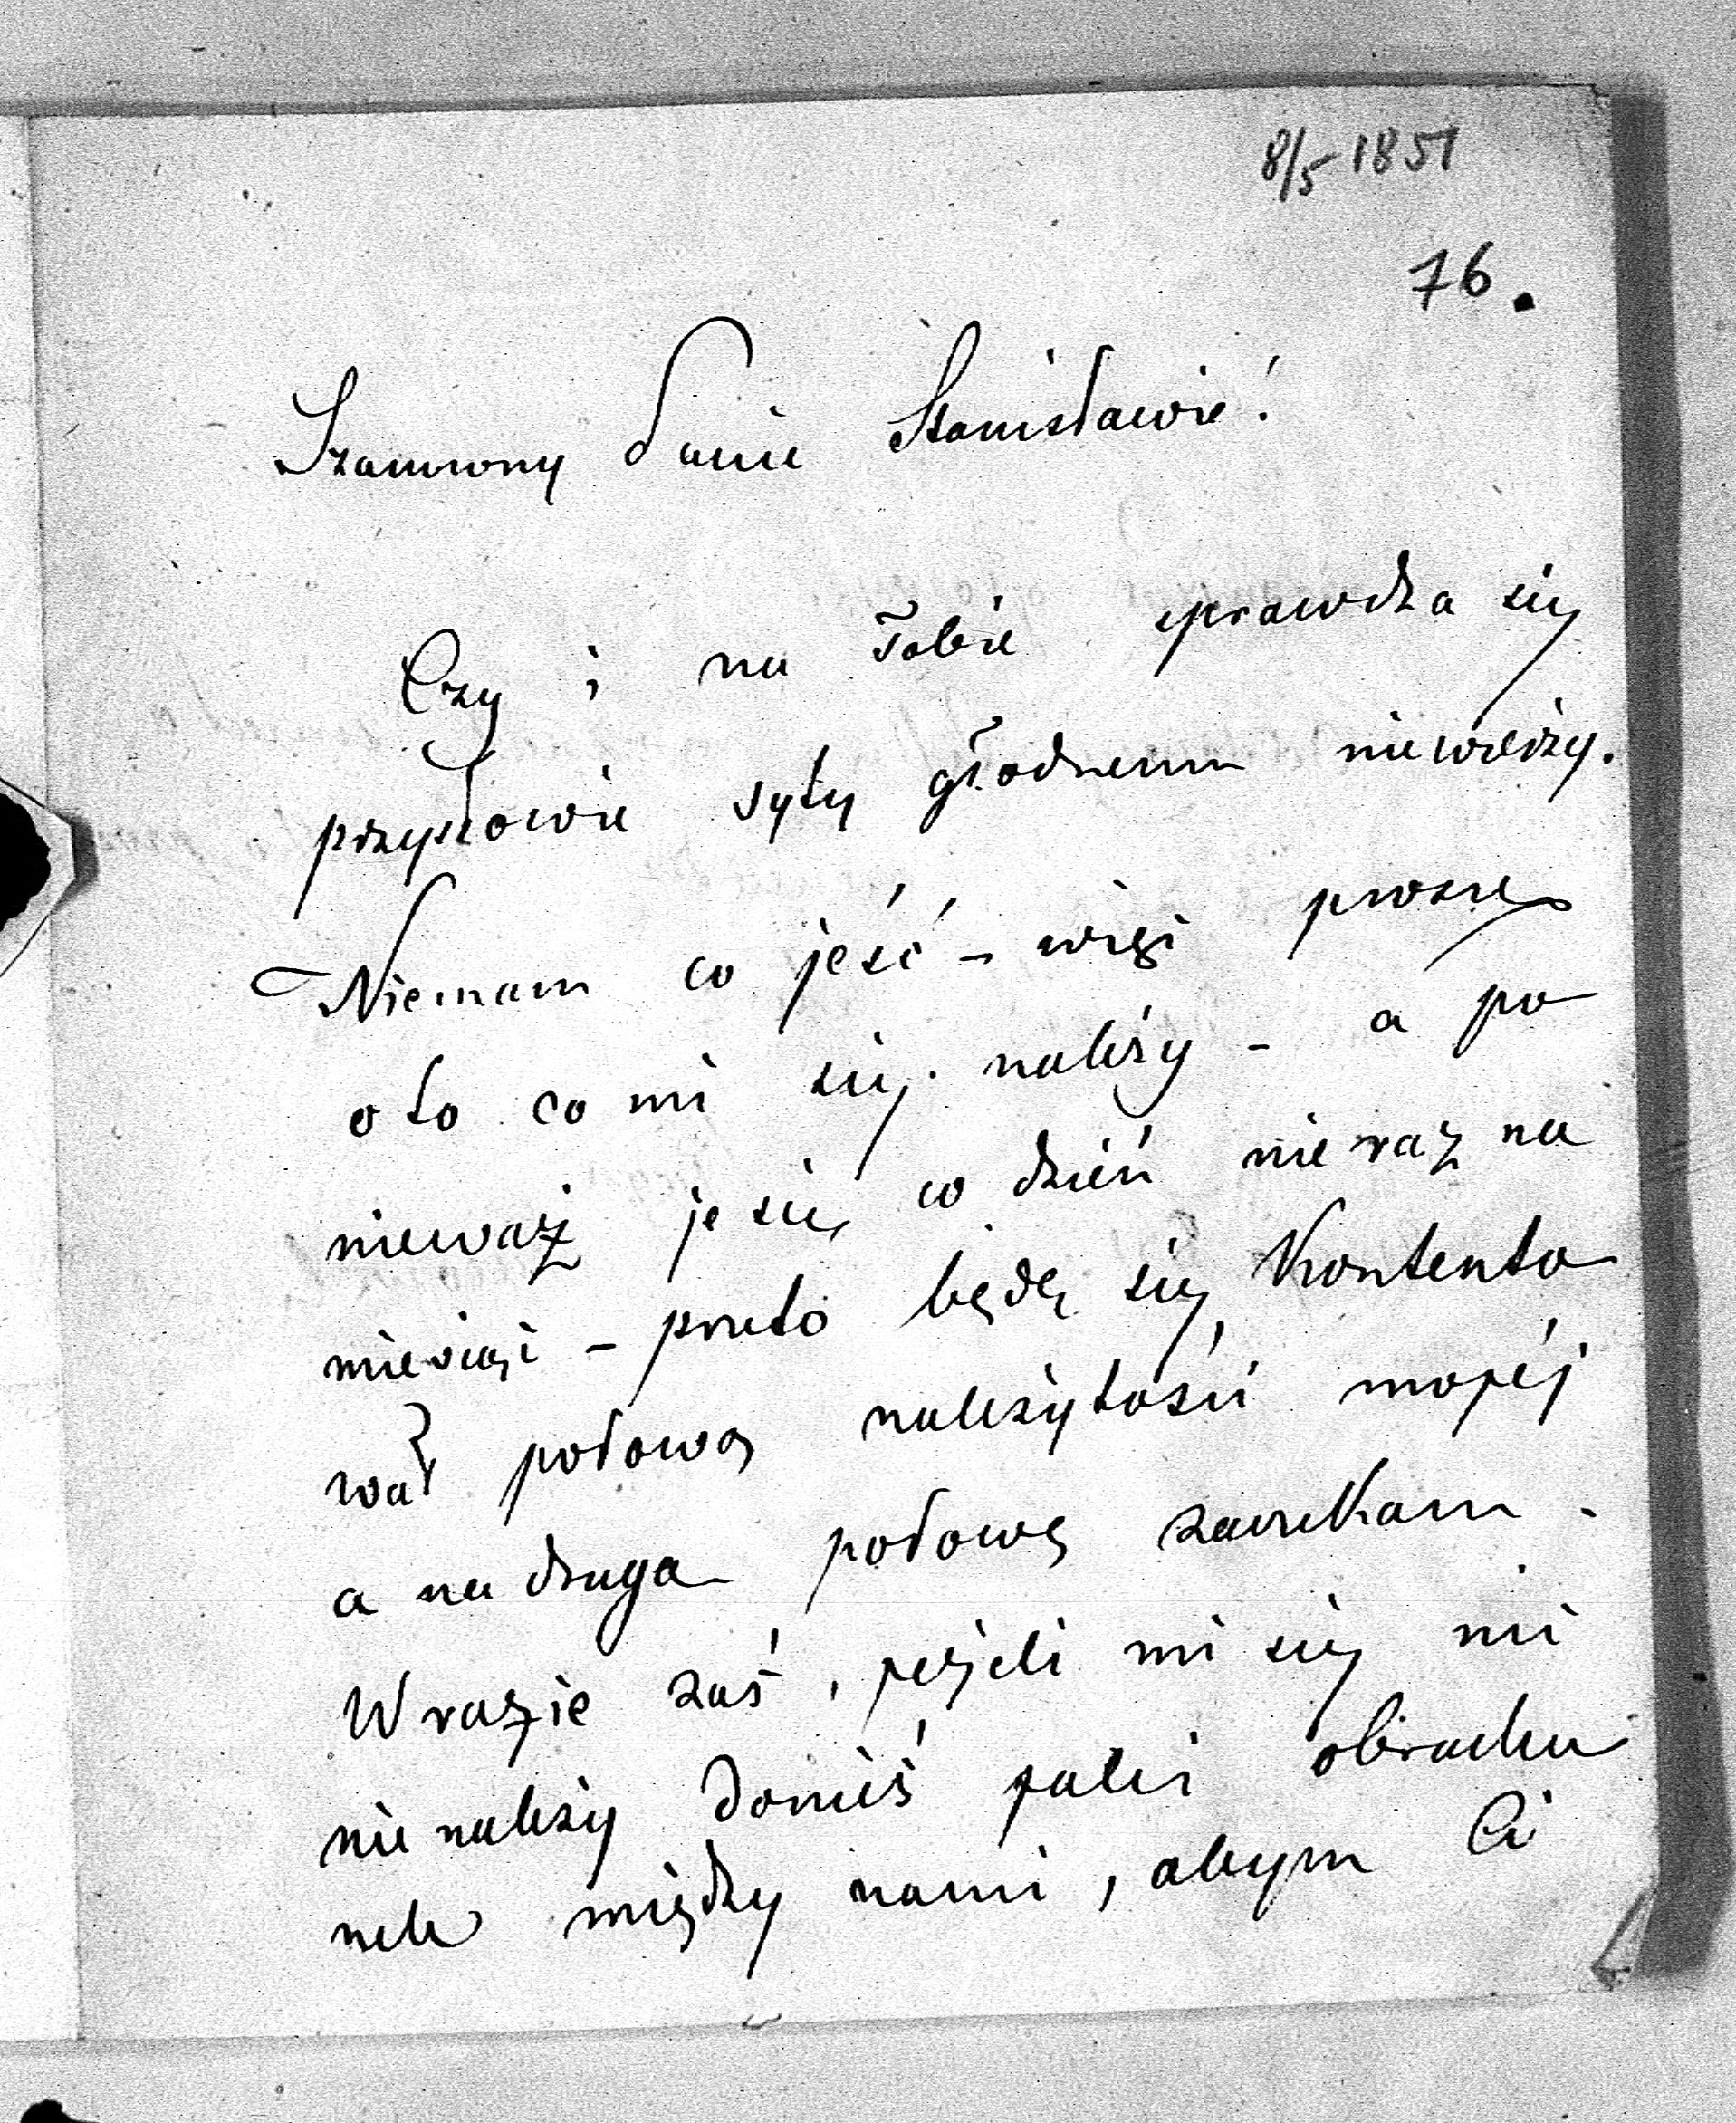 8/5 1851
76.
Szanowny Panie Stanisławie!
Czy i na Tobie sprawdza się
przysłowie syty głodnemu niewierzy.
Niemam co jeść – więc proszę
o to co mi się należy – a po
nieważ je się co dzień nie raz na
miesiąc – przeto będę się kontento
wał połową należytości mojéj
a na druga połowę zaczekam.
W razie zaś, jeżeli mi się nic
nie należy donieś jaki obrachu
nek między nami, abym Ci